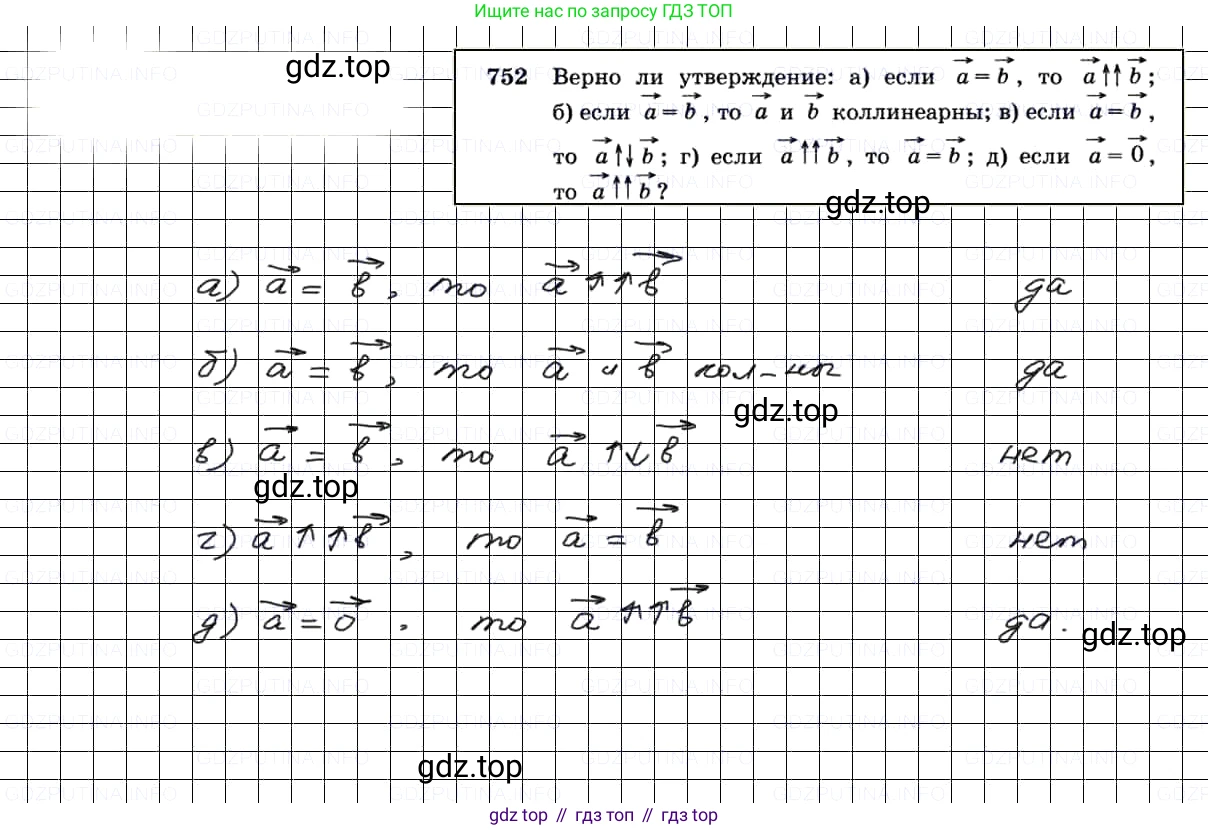 Ищите нас по запросу ГДЗ ТОП
gdz.top
752 Верно ли утверждение: а) если a⃗ = b⃗, то a⃗↑↑b⃗;
б) если a⃗ = b⃗, то a⃗ и b⃗ коллинеарны; в) если a⃗ = b⃗,
то a⃗↑↓b⃗; г) если a⃗↑↑b⃗, то a⃗ = b⃗; д) если a⃗ = 0⃗,
то a⃗↑↑b⃗?
gdz.top
а) a⃗ = b⃗, то a⃗ ↑↑ b⃗ да
б) a⃗ = b⃗, то a⃗ и b⃗ кол-ны да
gdz.top
в) a⃗ = b⃗, то a⃗ ↑↓ b⃗ нет
gdz.top
г) a⃗ ↑↑ b⃗, то a⃗ = b⃗ нет
д) a⃗ = 0⃗, то a⃗ ↑↑ b⃗ да.
gdz.top
gdz.top
gdz top // гдз топ // гдз top
GDZPUTINA.INFO